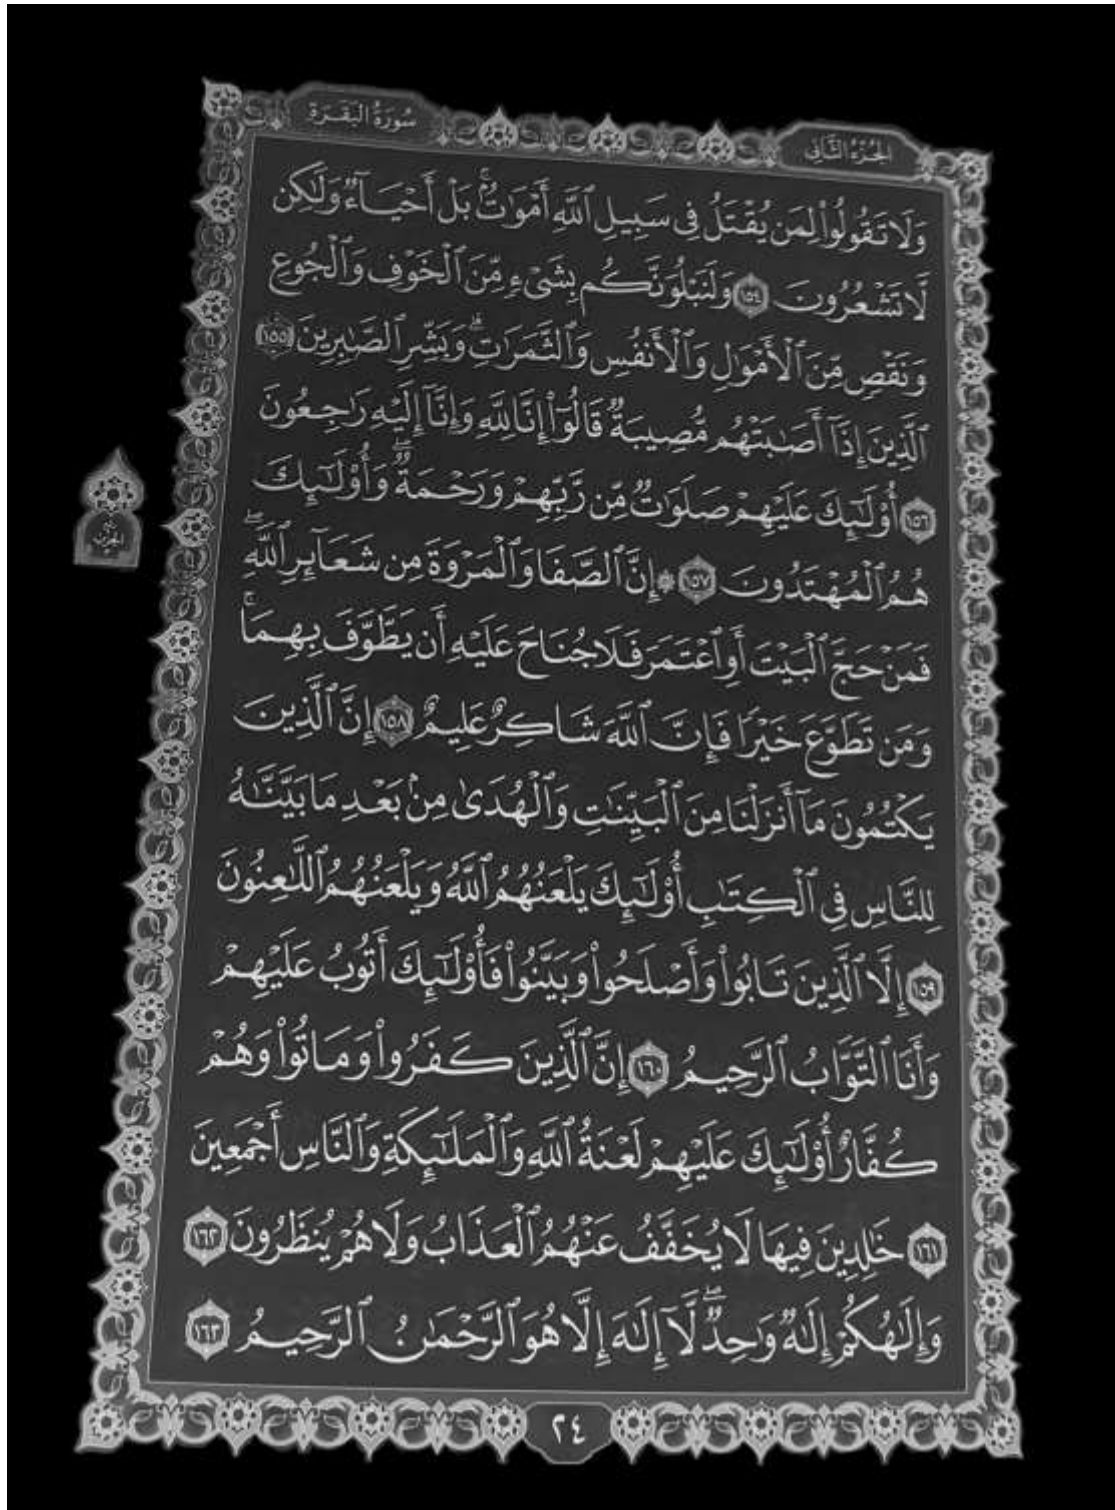 الجُزْءُ الثَّانِي
سُورَةُ البَقَرَةِ
وَلَا تَقُولُوا۟ لِمَن يُقْتَلُ فِى سَبِيلِ ٱللَّهِ أَمْوَٰتٌۢ ۚ بَلْ أَحْيَآءٌ وَلَـٰكِن
لَّا تَشْعُرُونَ ١٥٤ وَلَنَبْلُوَنَّكُم بِشَىْءٍ مِّنَ ٱلْخَوْفِ وَٱلْجُوعِ
وَنَقْصٍ مِّنَ ٱلْأَمْوَٰلِ وَٱلْأَنفُسِ وَٱلثَّمَرَٰتِ ۗ وَبَشِّرِ ٱلصَّـٰبِرِينَ ١٥٥
ٱلَّذِينَ إِذَآ أَصَـٰبَتْهُم مُّصِيبَةٌ قَالُوٓا۟ إِنَّا لِلَّهِ وَإِنَّآ إِلَيْهِ رَٰجِعُونَ
١٥٦ أُو۟لَـٰٓئِكَ عَلَيْهِمْ صَلَوَٰتٌ مِّن رَّبِّهِمْ وَرَحْمَةٌ ۖ وَأُو۟لَـٰٓئِكَ
هُمُ ٱلْمُهْتَدُونَ ١٥٧ ۞ إِنَّ ٱلصَّفَا وَٱلْمَرْوَةَ مِن شَعَآئِرِ ٱللَّهِ ۖ
فَمَنْ حَجَّ ٱلْبَيْتَ أَوِ ٱعْتَمَرَ فَلَا جُنَاحَ عَلَيْهِ أَن يَطَّوَّفَ بِهِمَا ۚ
وَمَن تَطَوَّعَ خَيْرًا فَإِنَّ ٱللَّهَ شَاكِرٌ عَلِيمٌ ١٥٨ إِنَّ ٱلَّذِينَ
يَكْتُمُونَ مَآ أَنزَلْنَا مِنَ ٱلْبَيِّنَـٰتِ وَٱلْهُدَىٰ مِنۢ بَعْدِ مَا بَيَّنَّـٰهُ
لِلنَّاسِ فِى ٱلْكِتَـٰبِ أُو۟لَـٰٓئِكَ يَلْعَنُهُمُ ٱللَّهُ وَيَلْعَنُهُمُ ٱللَّـٰعِنُونَ
١٥٩ إِلَّا ٱلَّذِينَ تَابُوا۟ وَأَصْلَحُوا۟ وَبَيَّنُوا۟ فَأُو۟لَـٰٓئِكَ أَتُوبُ عَلَيْهِمْ
وَأَنَا ٱلتَّوَّابُ ٱلرَّحِيمُ ١٦٠ إِنَّ ٱلَّذِينَ كَفَرُوا۟ وَمَاتُوا۟ وَهُمْ
كُفَّارٌ أُو۟لَـٰٓئِكَ عَلَيْهِمْ لَعْنَةُ ٱللَّهِ وَٱلْمَلَـٰٓئِكَةِ وَٱلنَّاسِ أَجْمَعِينَ
١٦١ خَـٰلِدِينَ فِيهَا لَا يُخَفَّفُ عَنْهُمُ ٱلْعَذَابُ وَلَا هُمْ يُنظَرُونَ ١٦٢
وَإِلَـٰهُكُمْ إِلَـٰهٌ وَٰحِدٌ ۖ لَّآ إِلَـٰهَ إِلَّا هُوَ ٱلرَّحْمَـٰنُ ٱلرَّحِيمُ ١٦٣
٢٤